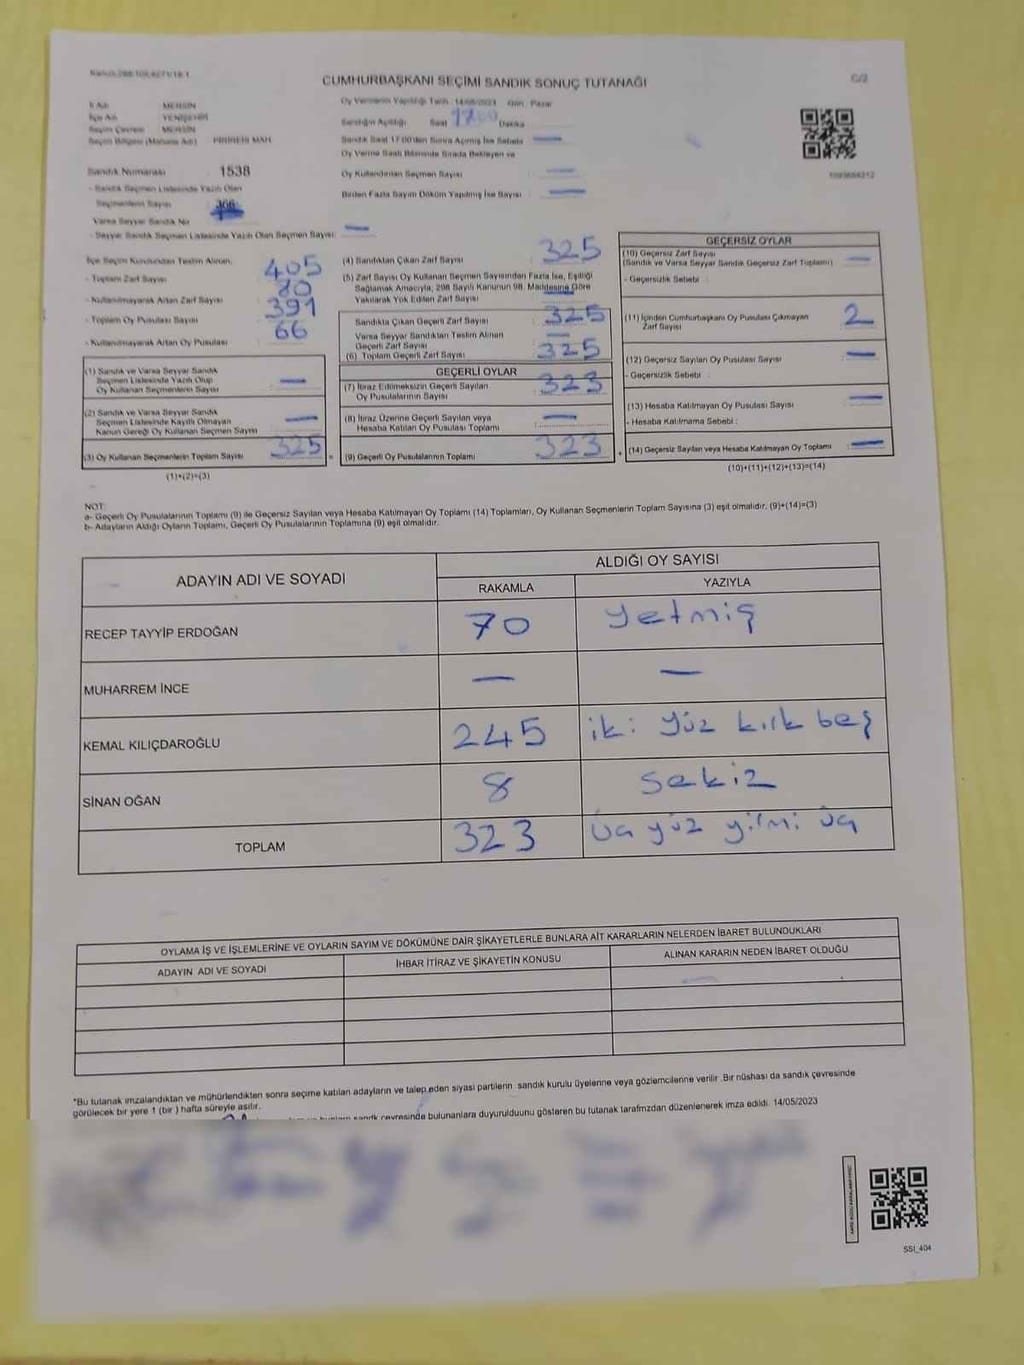 CUMHURBAŞKANI SEÇİMİ SANDIK SONUÇ TUTANAĞI
C/2
İl Adı MERSİN
İlçe Adı YENİŞEHİR
Seçim Çevresi MERSİN
Seçim Bölgesi (Mahalle Adı)
Oy Vermenin Yapıldığı Tarih 14/05/2023 Gün Pazar
Sandığın Açıldığı Saat Dakika
Sandık Saat 17:00'den Sonra Açılmış İse Sebebi —
Oy Verme Saati Bitiminde Sırada Bekleyen ve
Oy Kullandırılan Seçmen Sayısı —
Birden Fazla Sayım Döküm Yapılmış İse Sayısı —
Sandık Numarası 1538
- Sandık Seçmen Listesinde Yazılı Olan
Seçmenlerin Sayısı 366
Varsa Seyyar Sandık No
- Seyyar Sandık Seçmen Listesinde Yazılı Olan Seçmen Sayısı —
İlçe Seçim Kurulundan Teslim Alınan
- Toplam Zarf Sayısı 405
- Kullanılmayarak Artan Zarf Sayısı 80
- Toplam Oy Pusulası Sayısı 391
- Kullanılmayarak Artan Oy Pusulası 66
(1) Sandık ve Varsa Seyyar Sandık
Seçmen Listesinde Yazılı Olup
Oy Kullanan Seçmenlerin Sayısı —
(2) Sandık ve Varsa Seyyar Sandık
Seçmen Listesinde Kayıtlı Olmayan
Kanun Gereği Oy Kullanan Seçmen Sayısı —
(3) Oy Kullanan Seçmenlerin Toplam Sayısı 325
(1)+(2)=(3)
(4) Sandıktan Çıkan Zarf Sayısı 325
(5) Zarf Sayısı Oy Kullanan Seçmen Sayısından Fazla İse, Eşitliği
Sağlamak Amacıyla, 298 Sayılı Kanunun 98. Maddesine Göre
Yakılarak Yok Edilen Zarf Sayısı —
Sandıkta Çıkan Geçerli Zarf Sayısı 325
Varsa Seyyar Sandıktan Teslim Alınan
Geçerli Zarf Sayısı —
(6) Toplam Geçerli Zarf Sayısı 325
GEÇERLİ OYLAR
(7) İtiraz Edilmeksizin Geçerli Sayılan
Oy Pusulalarının Sayısı 323
(8) İtiraz Üzerine Geçerli Sayılan veya
Hesaba Katılan Oy Pusulası Toplamı —
(9) Geçerli Oy Pusulalarının Toplamı 323
GEÇERSİZ OYLAR
(10) Geçersiz Zarf Sayısı
(Sandık ve Varsa Seyyar Sandık Geçersiz Zarf Toplamı) —
- Geçersizlik Sebebi :
(11) İçinden Cumhurbaşkanı Oy Pusulası Çıkmayan
Zarf Sayısı 2
(12) Geçersiz Sayılan Oy Pusulası Sayısı —
- Geçersizlik Sebebi :
(13) Hesaba Katılmayan Oy Pusulası Sayısı —
- Hesaba Katılmama Sebebi :
(14) Geçersiz Sayılan veya Hesaba Katılmayan Oy Toplamı —
(10)+(11)+(12)+(13)=(14)
NOT:
a- Geçerli Oy Pusulalarının Toplamı (9) ile Geçersiz Sayılan veya Hesaba Katılmayan Oy Toplamı (14) Toplamları, Oy Kullanan Seçmenlerin Toplam Sayısına (3) eşit olmalıdır. (9)+(14)=(3)
b- Adayların Aldığı Oyların Toplamı, Geçerli Oy Pusulalarının Toplamına (9) eşit olmalıdır.
ADAYIN ADI VE SOYADI
ALDIĞI OY SAYISI
RAKAMLA YAZIYLA
RECEP TAYYİP ERDOĞAN 70 yetmiş
MUHARREM İNCE — —
KEMAL KILIÇDAROĞLU 245 iki yüz kırk beş
SİNAN OĞAN 8 sekiz
TOPLAM 323 üç yüz yirmi üç
OYLAMA İŞ VE İŞLEMLERİNE VE OYLARIN SAYIM VE DÖKÜMÜNE DAİR ŞİKAYETLERLE BUNLARA AİT KARARLARIN NELERDEN İBARET BULUNDUKLARI
ADAYIN ADI VE SOYADI İHBAR İTİRAZ VE ŞİKAYETİN KONUSU ALINAN KARARIN NEDEN İBARET OLDUĞU
*Bu tutanak imzalandıktan ve mühürlendikten sonra seçime katılan adayların ve talep eden siyasi partilerin sandık kurulu üyelerine veya gözlemcilerine verilir. Bir nüshası da sandık çevresinde
görülecek bir yere 1 (bir) hafta süreyle asılır.
sandık çevresinde bulunanlara duyurulduunu gösteren bu tutanak tarafımzdan düzenlenerek imza edildi. 14/05/2023
SSI_404